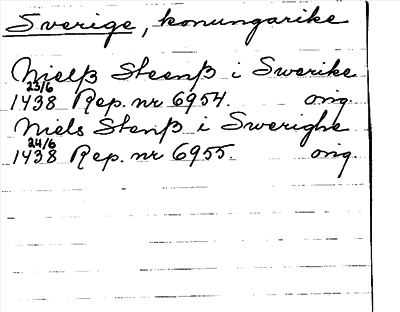 Sverige, konungarike
Nielß Steenß i Swerike
23/6
1438 Rep. nr 6954. orig.
Niels Stenß i Swerighe
24/6
1438 Rep. nr 6955. orig.